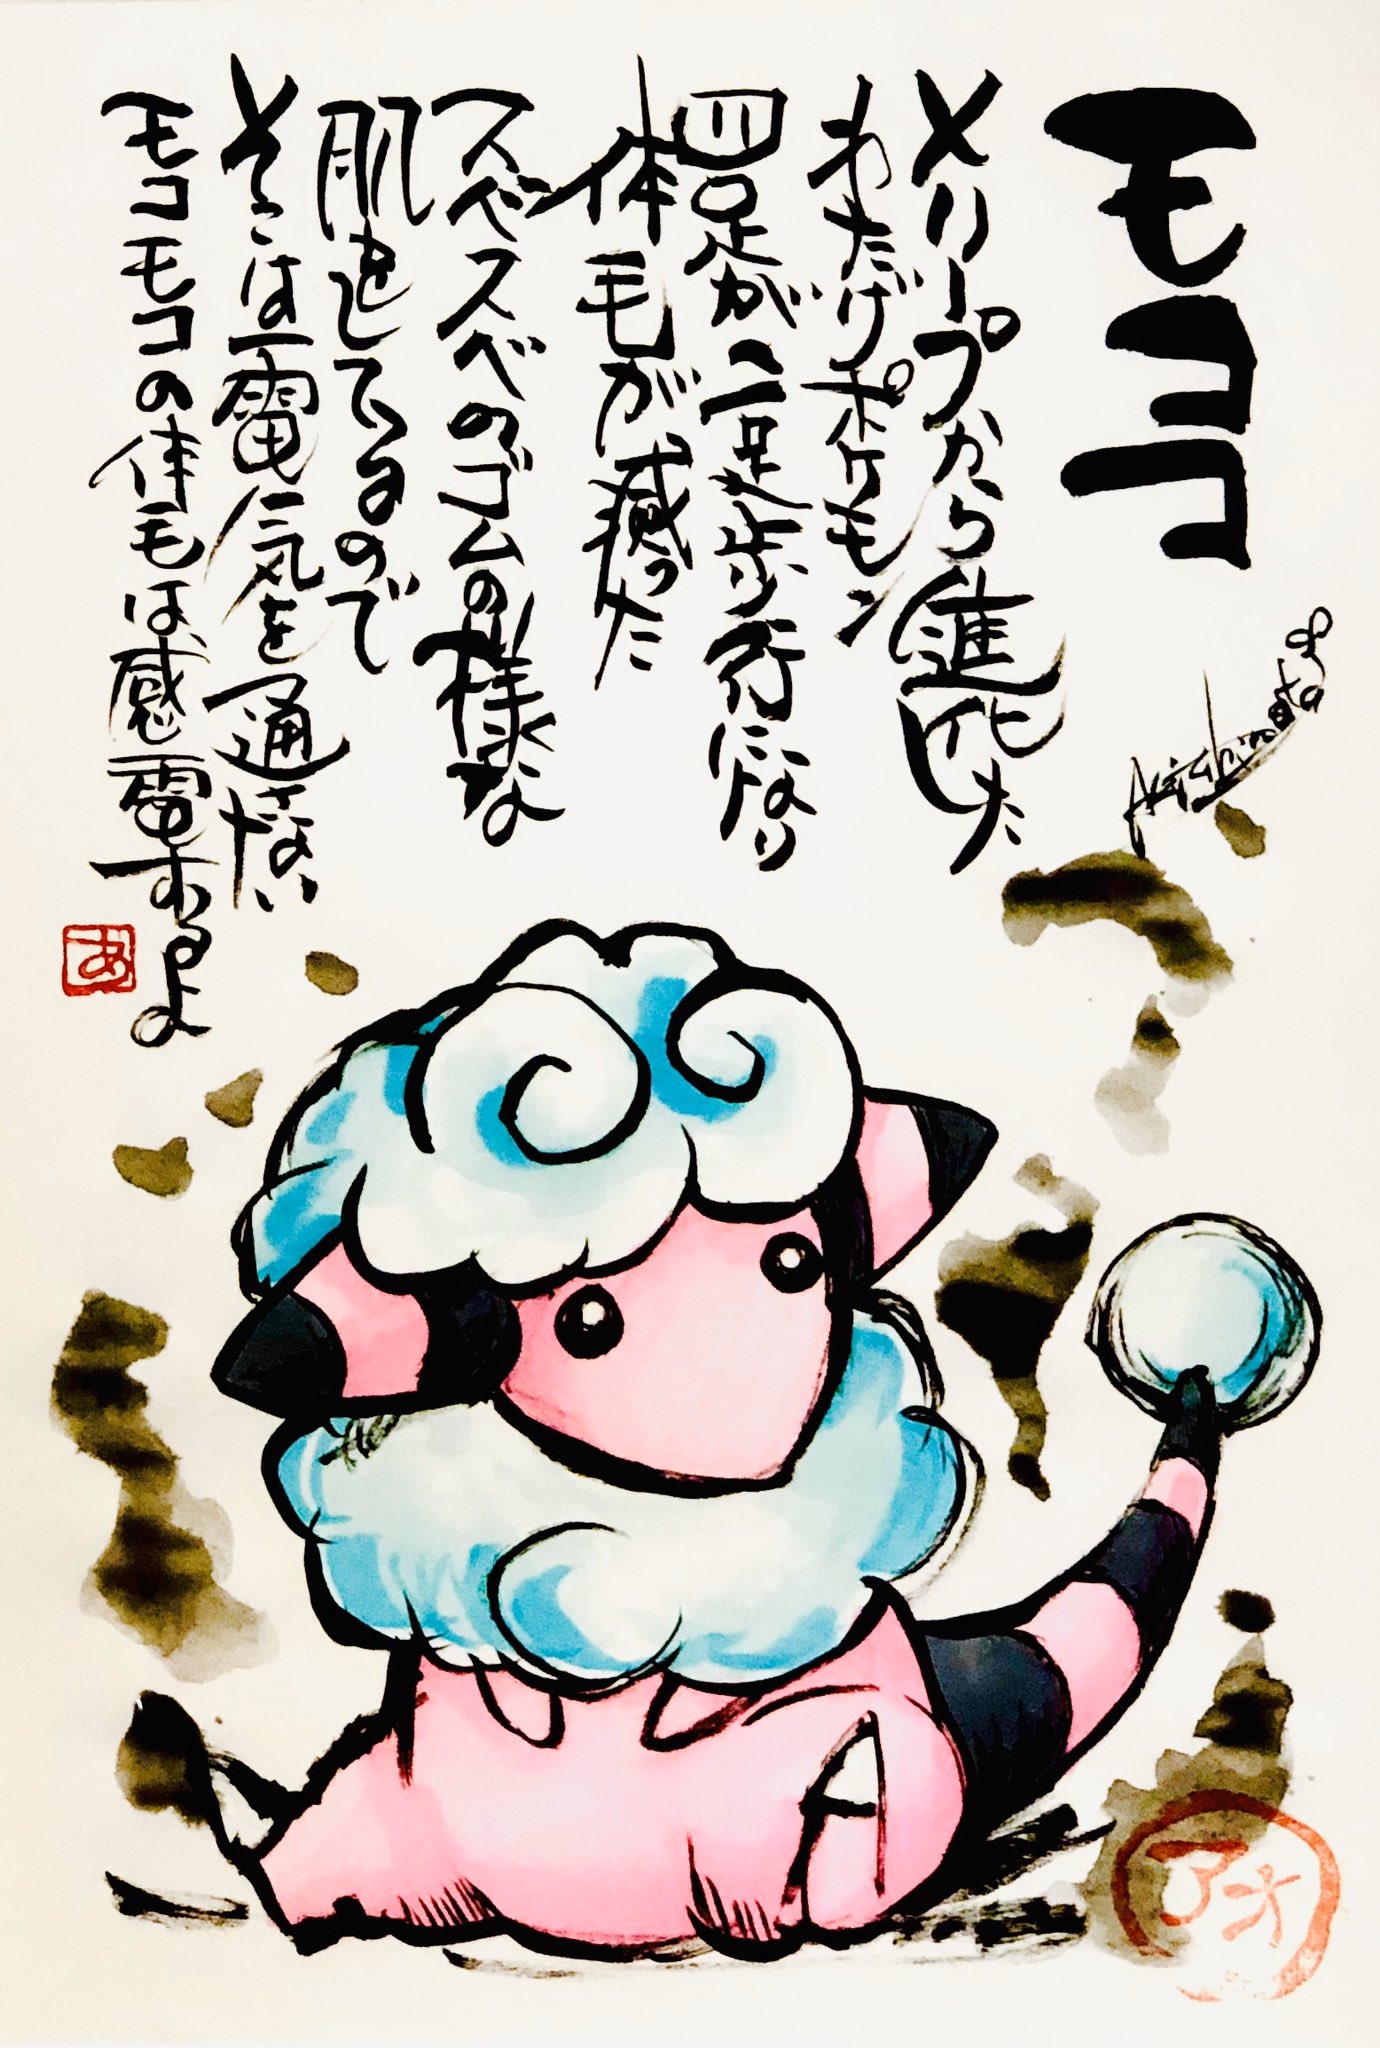 モココ
メリープから進化した
わたげポケモン
四足が二足歩行になり
体毛が減った
スベスベのゴムの様な
肌をしてるので
そこは電気を通さない
モコモコの体毛は感電するよ
あ
アオ